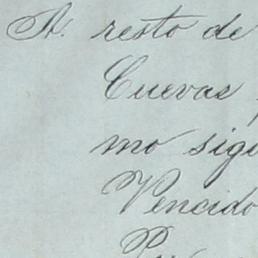 A. resto de
Cuevas
mo sigu
Vencido